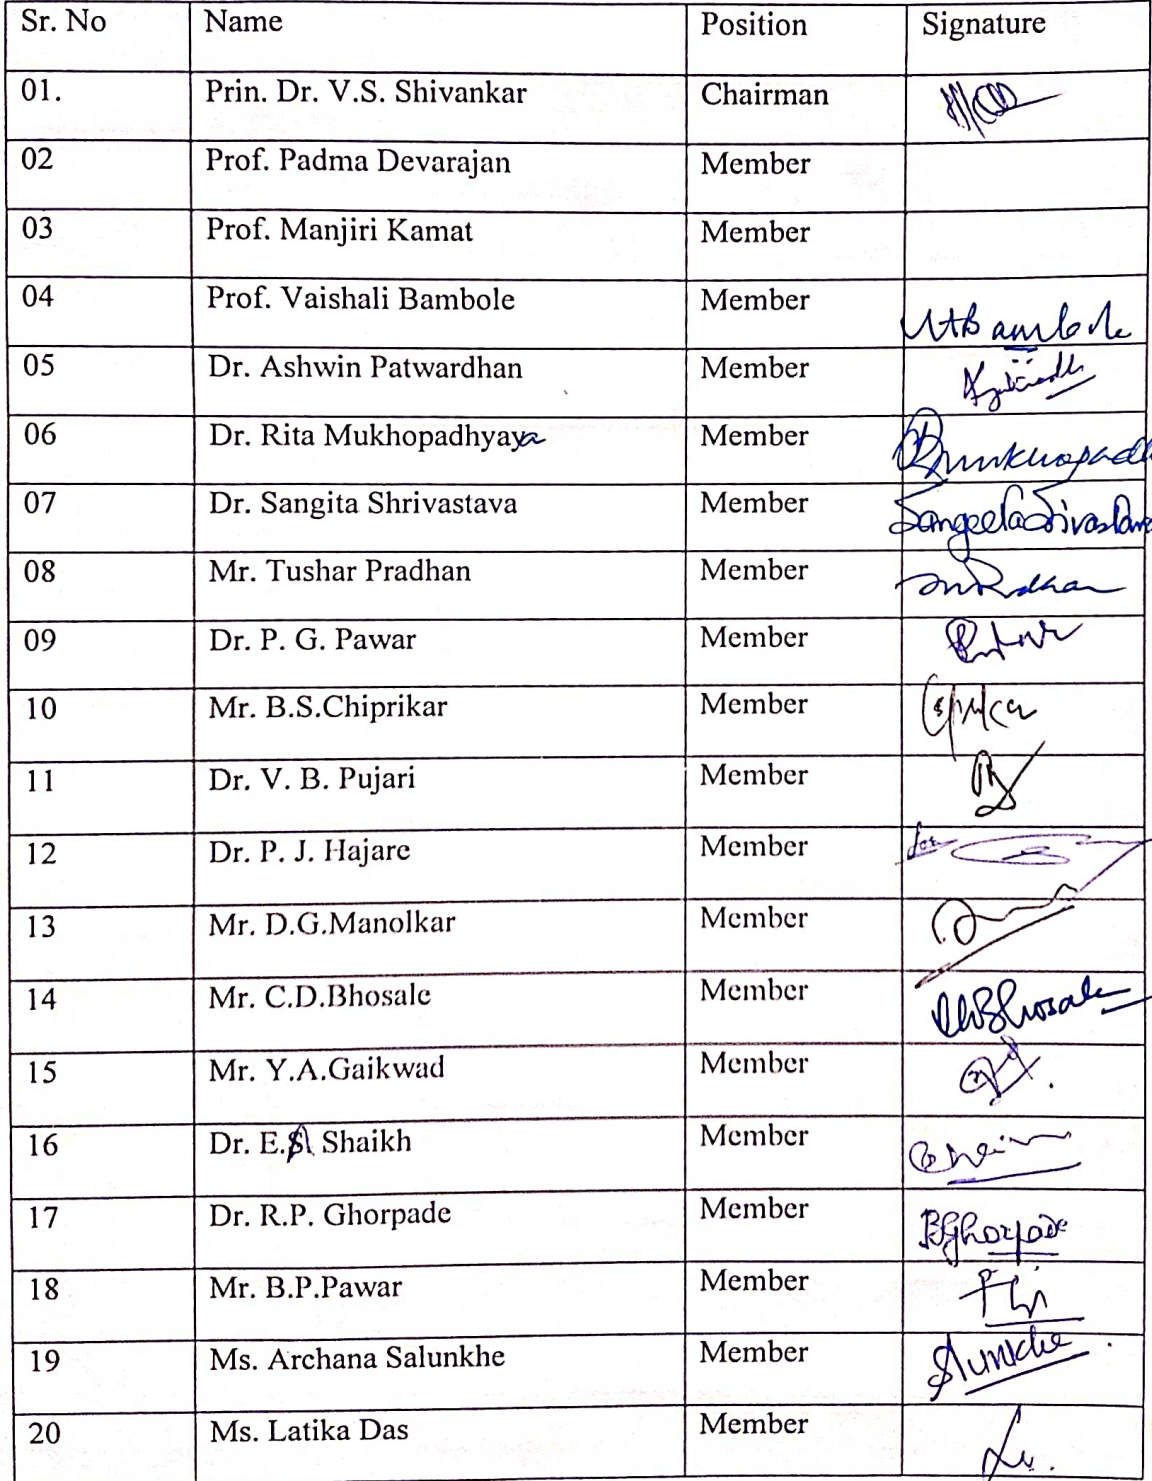 Sr. No Name Position Signature
01. Prin. Dr. V.S. Shivankar Chairman
02 Prof. Padma Devarajan Member
03 Prof. Manjiri Kamat Member
04 Prof. Vaishali Bambole Member VABambole
05 Dr. Ashwin Patwardhan Member
06 Dr. Rita Mukhopadhyaya Member
07 Dr. Sangita Shrivastava Member
08 Mr. Tushar Pradhan Member
09 Dr. P. G. Pawar Member
10 Mr. B.S.Chiprikar Member
11 Dr. V. B. Pujari Member
12 Dr. P. J. Hajare Member for
13 Mr. D.G.Manolkar Member
14 Mr. C.D.Bhosale Member
15 Mr. Y.A.Gaikwad Member
16 Dr. E.A Shaikh Member
17 Dr. R.P. Ghorpade Member
18 Mr. B.P.Pawar Member
19 Ms. Archana Salunkhe Member
20 Ms. Latika Das Member